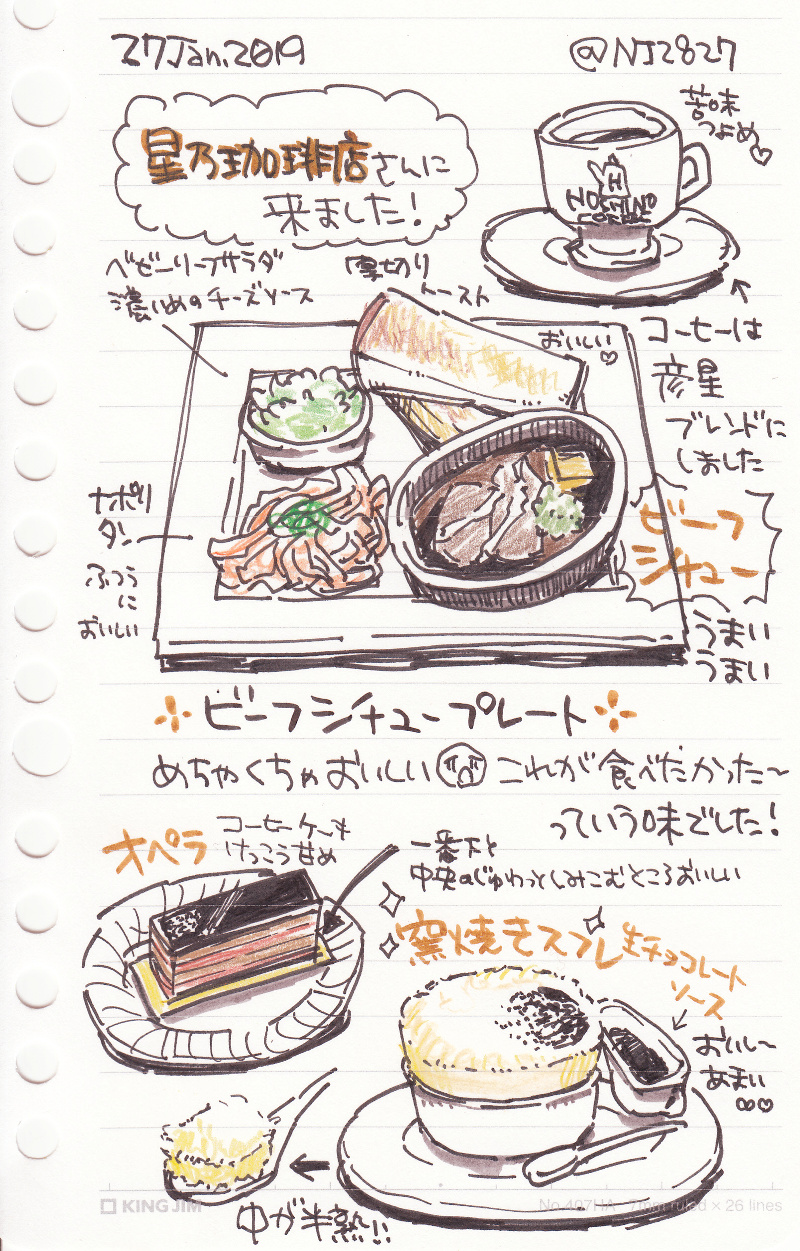 27Jan.2019
@NJ2827
星乃珈琲店さんに
来ました!
苦味
つよめ♡
HOSHINO
COFFEE
コーヒーは
彦星
ブレンドに
しました
ベビーリーフサラダ
濃いめのチーズソース
厚切り
トースト
おいしい♡
ナポリ
タン
ふつう
に
おいしい
ビーフ
シチュー
うまい
うまい
ビーフシチュープレート
めちゃくちゃおいしい これが食べたかった〜
っていう味でした!
オペラ
コーヒーケーキ
けっこう甘め
一番下と
中央のじゅわっとしみこむところおいしい
窯焼きスフレ
生チョコレート
ソース
おいし〜
あまい
♡♡
中が半熟!!
KING JIM
No.407HA 7mm ruled × 26 lines